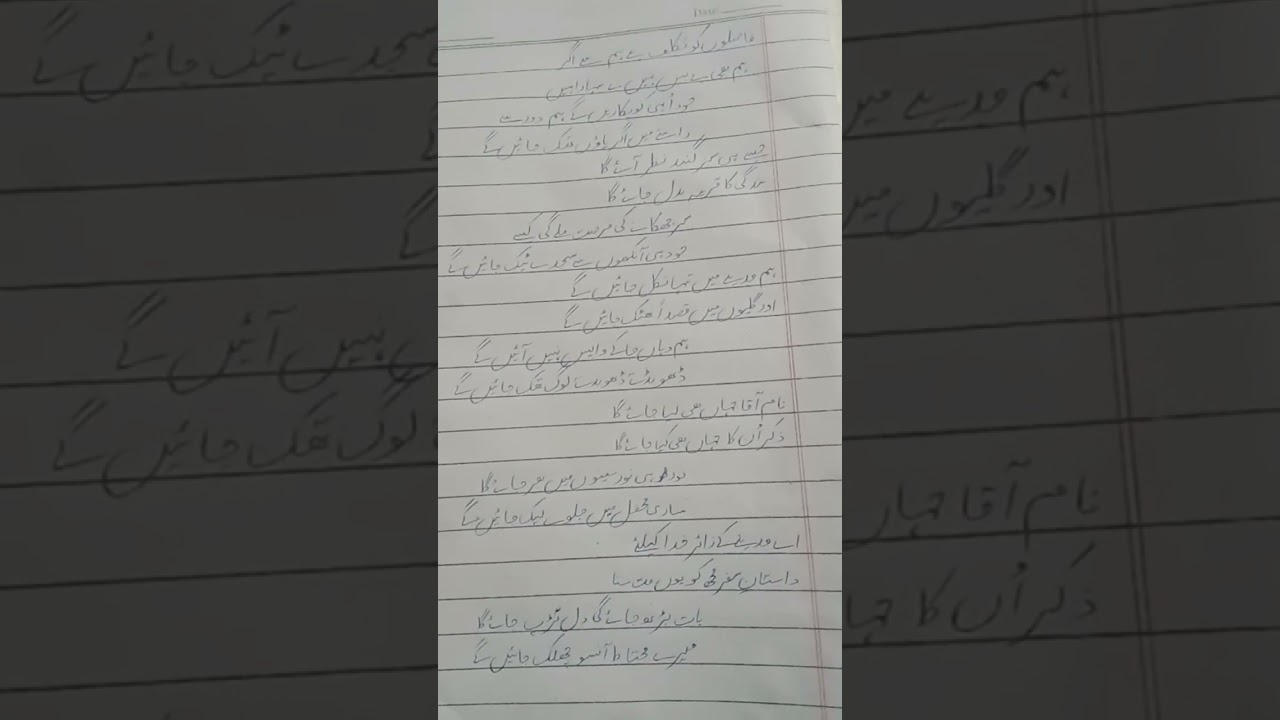 فاصلوں کو تکلف ہے ہم سے اگر
ہم بھی بے بس نہیں بے سہارا نہیں
خود اُنہی کو پکاریں گے ہم دور سے
راستے میں اگر پاؤں تھک جائیں گے
جیسے ہی سبز گنبد نظر آئے گا
بندگی کا قرینہ بدل جائے گا
سر جھکانے کی فرصت ملے گی کسے
خود ہی آنکھوں سے سجدے ٹپک جائیں گے
ہم مدینے میں تنہا نکل جائیں گے
اور گلیوں میں قصداً بھٹک جائیں گے
ہم وہاں جا کے واپس نہیں آئیں گے
ڈھونڈتے ڈھونڈتے لوگ تھک جائیں گے
نام آقا جہاں بھی لیا جائے گا
ذکر اُن کا جہاں بھی کیا جائے گا
نور ہی نور سینوں میں بھر جائے گا
ساری محفل میں جلوے لپک جائیں گے
اے مدینے کے زائر خدا کیلئے
داستانِ سفر مجھ کو یوں مت سنا
بات بڑھ جائے گی دل تڑپ جائے گا
میرے محتاط آنسو چھلک جائیں گے